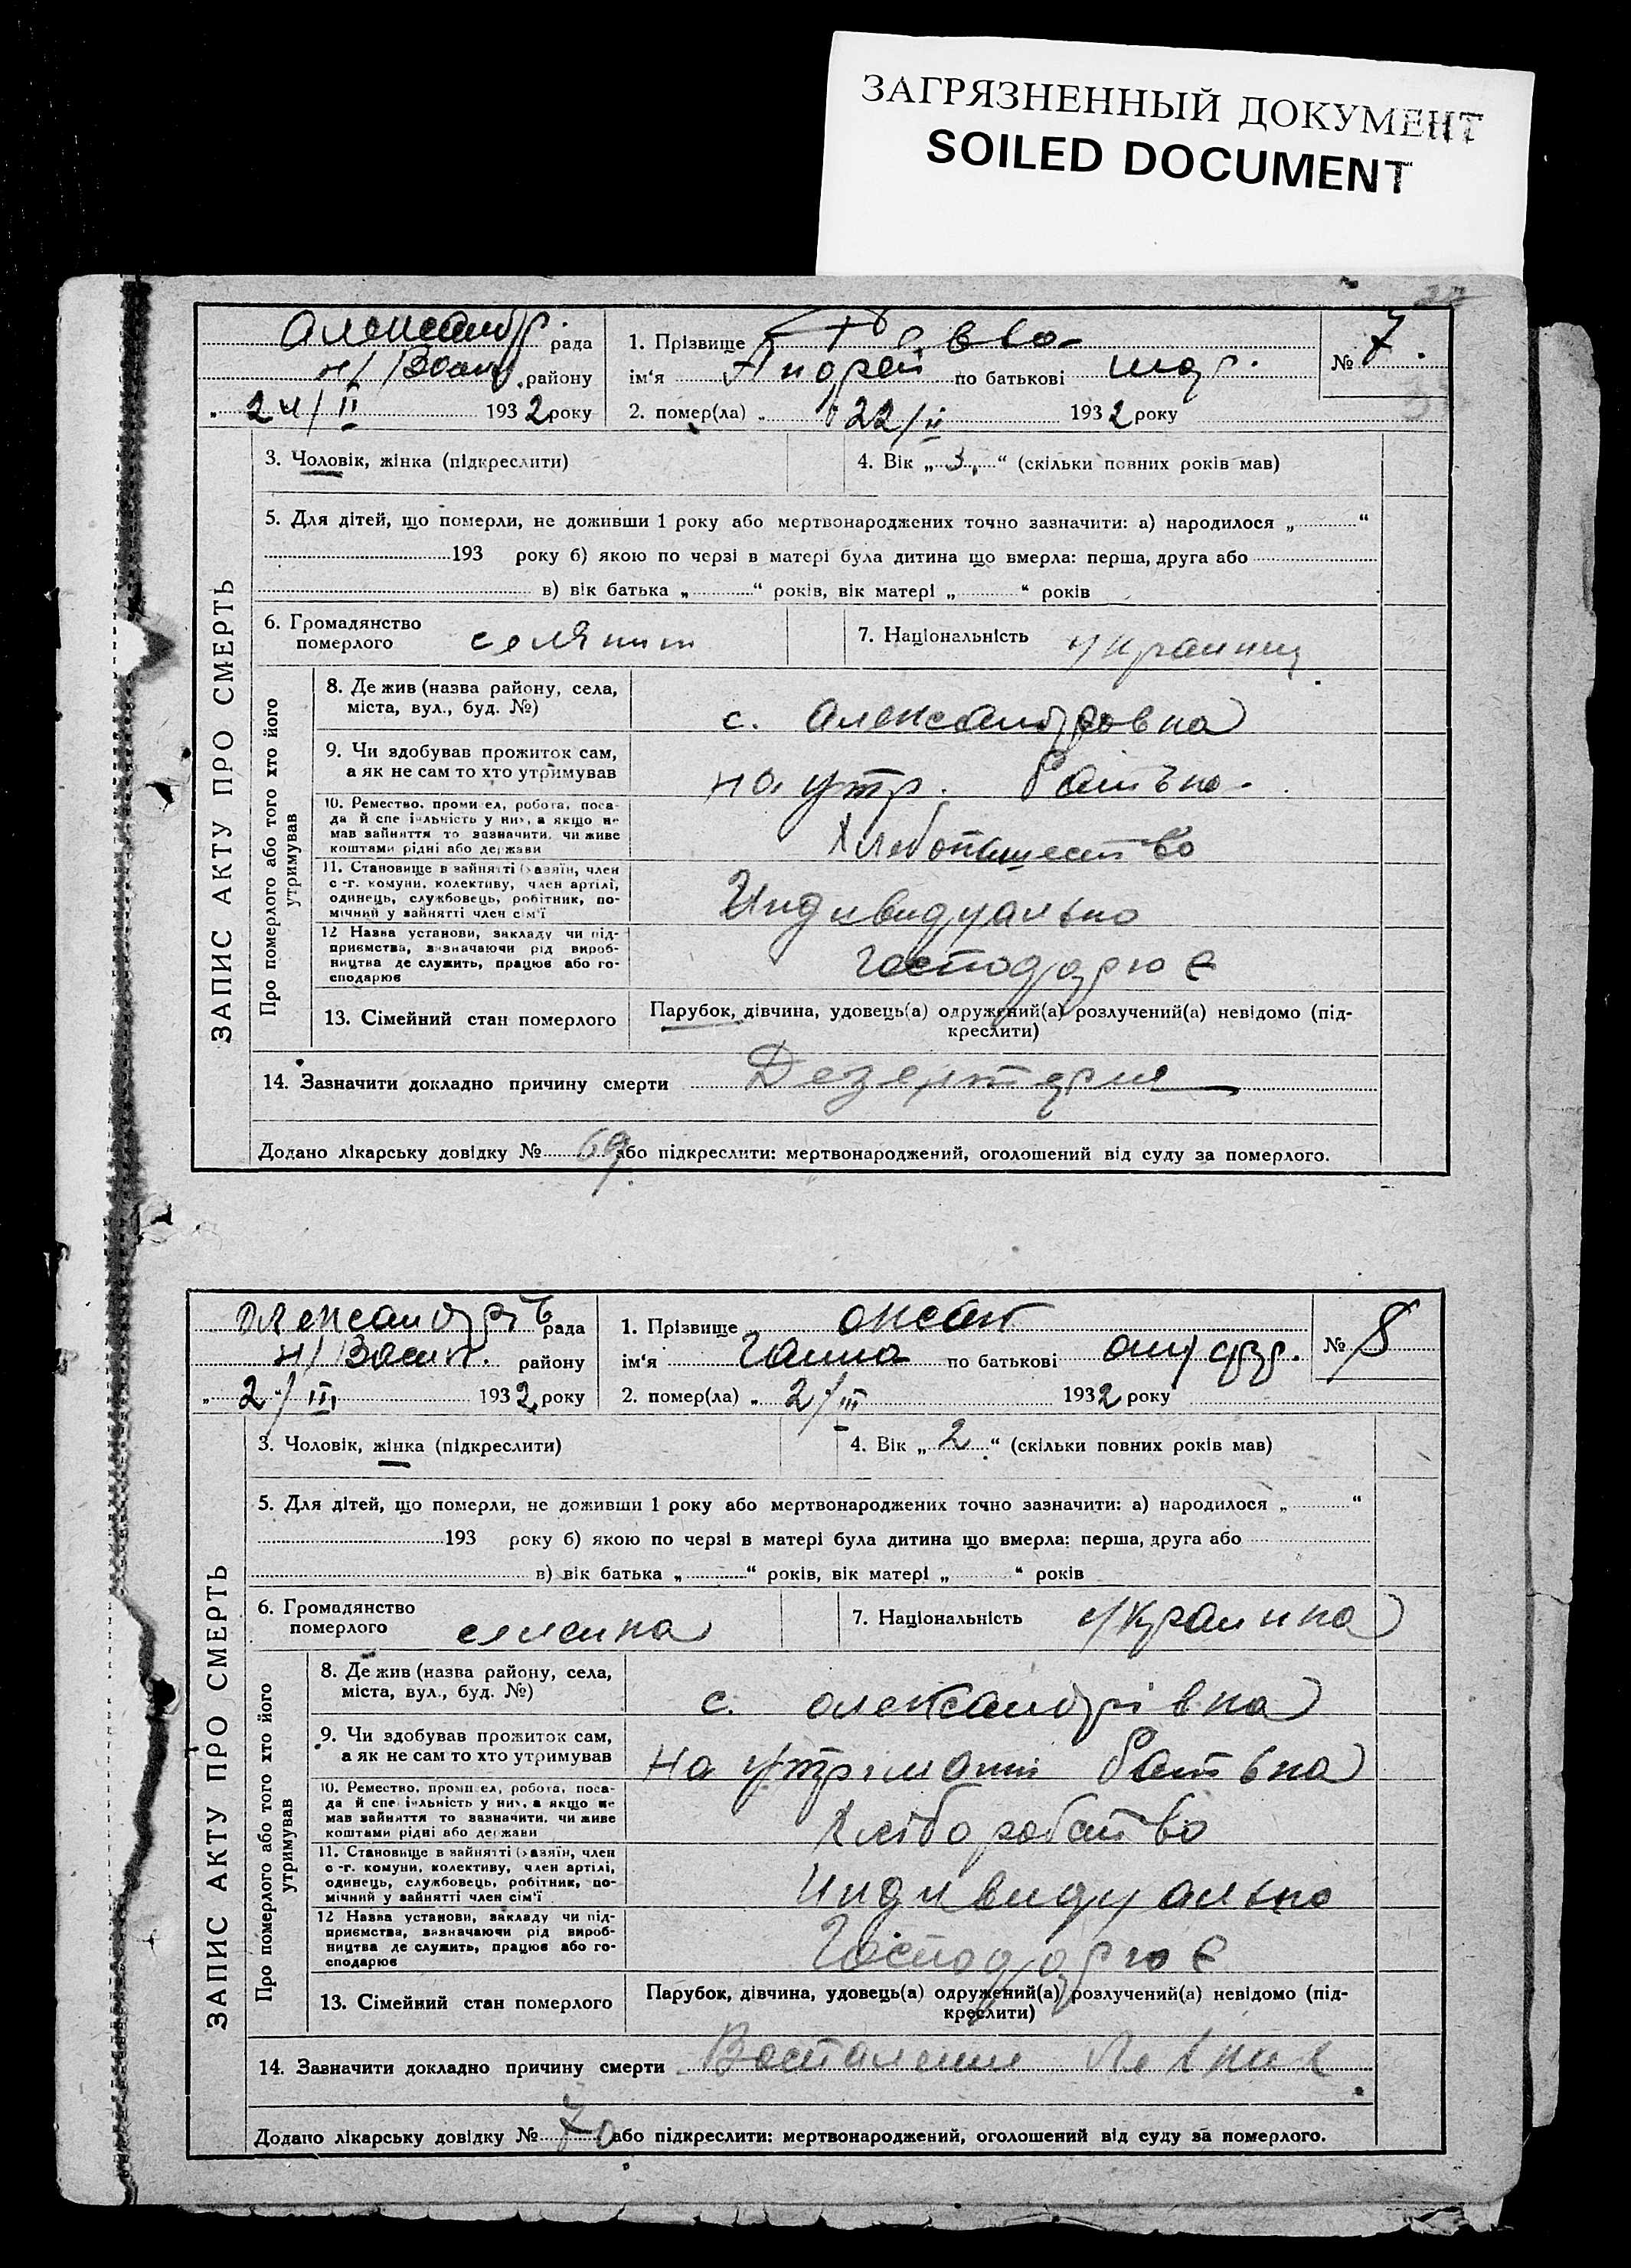 ЗАГРЯЗНЕННЫЙ ДОКУМЕНТ
SOILED DOCUMENT
ЗАПИС АКТУ ПРО СМЕРТЬ
Александр. рада
н/Васил. району
„ 24/II 1932 року
1. Прізвище
ім'я Андрей по батькові
№ 7.
2. помер(ла) „ 22/II 1932 року
3. Чоловік, жінка (підкреслити)
4. Вік „ 3 “ (скільки повних років мав)
5. Для дітей, що померли, не доживши 1 року або мертвонароджених точно зазначити: а) народилося „ “
193 року б) якою по черзі в матері була дитина що вмерла: перша, друга або
в) вік батька „ “ років, вік матері „ “ років
6. Громадянство померлого селянин
7. Національність Украинец
Про померлого або того хто його утримував
8. Де жив (назва району, села,
міста, вул., буд. №)
с. Александровка
9. Чи здобував прожиток сам,
а як не сам то хто утримував
на утр. батька.
10. Ремество, промисел, робота, поса-
да й спеціяльність у них, а якщо не
мав зайняття то зазначити, чи живе
коштами рідні або держави
Хлебопашество
11. Становище в зайнятті (хазяїн, член
с.-г. комуни, колективу, член артілі,
одинець, службовець, робітник, по-
мічний у зайнятті член сім'ї
Индивидуально
12 Назва установи, закладу чи під-
приємства, визначаючи рід вироб-
ництва де служить, працює або го-
сподарює
Господарює
13. Сімейний стан померлого
Парубок, дівчина, удовець(а) одружений(а) розлучений(а) невідомо (під-
креслити)
14. Зазначити докладно причину смерти Дезентерия
Додано лікарську довідку № 69 або підкреслити: мертвонароджений, оголошений від суду за померлого.
ЗАПИС АКТУ ПРО СМЕРТЬ
Олександрів рада
н/Васил. району
„ 2/III 1932 року
1. Прізвище
ім'я Ганна по батькові
№ 8
2. помер(ла) „ 2/III 1932 року
3. Чоловік, жінка (підкреслити)
4. Вік „ 2 “ (скільки повних років мав)
5. Для дітей, що померли, не доживши 1 року або мертвонароджених точно зазначити: а) народилося „ “
193 року б) якою по черзі в матері була дитина що вмерла: перша, друга або
в) вік батька „ “ років, вік матері „ “ років
6. Громадянство померлого
7. Національність Украинка
Про померлого або того хто його утримував
8. Де жив (назва району, села,
міста, вул., буд. №)
с. Олександрівка
9. Чи здобував прожиток сам,
а як не сам то хто утримував
На утриманні батька
10. Ремество, промисел, робота, поса-
да й спеціяльність у них, а якщо не
мав зайняття то зазначити, чи живе
коштами рідні або держави
Хліборобство
11. Становище в зайнятті (хазяїн, член
с.-г. комуни, колективу, член артілі,
одинець, службовець, робітник, по-
мічний у зайнятті член сім'ї
Индивидуально
12 Назва установи, закладу чи під-
приємства, визначаючи рід вироб-
ництва де служить, працює або го-
сподарює
Господарює
13. Сімейний стан померлого
Парубок, дівчина, удовець(а) одружений(а) розлучений(а) невідомо (під-
креслити)
14. Зазначити докладно причину смерти Воспаление
Додано лікарську довідку № 70 або підкреслити: мертвонароджений, оголошений від суду за померлого.